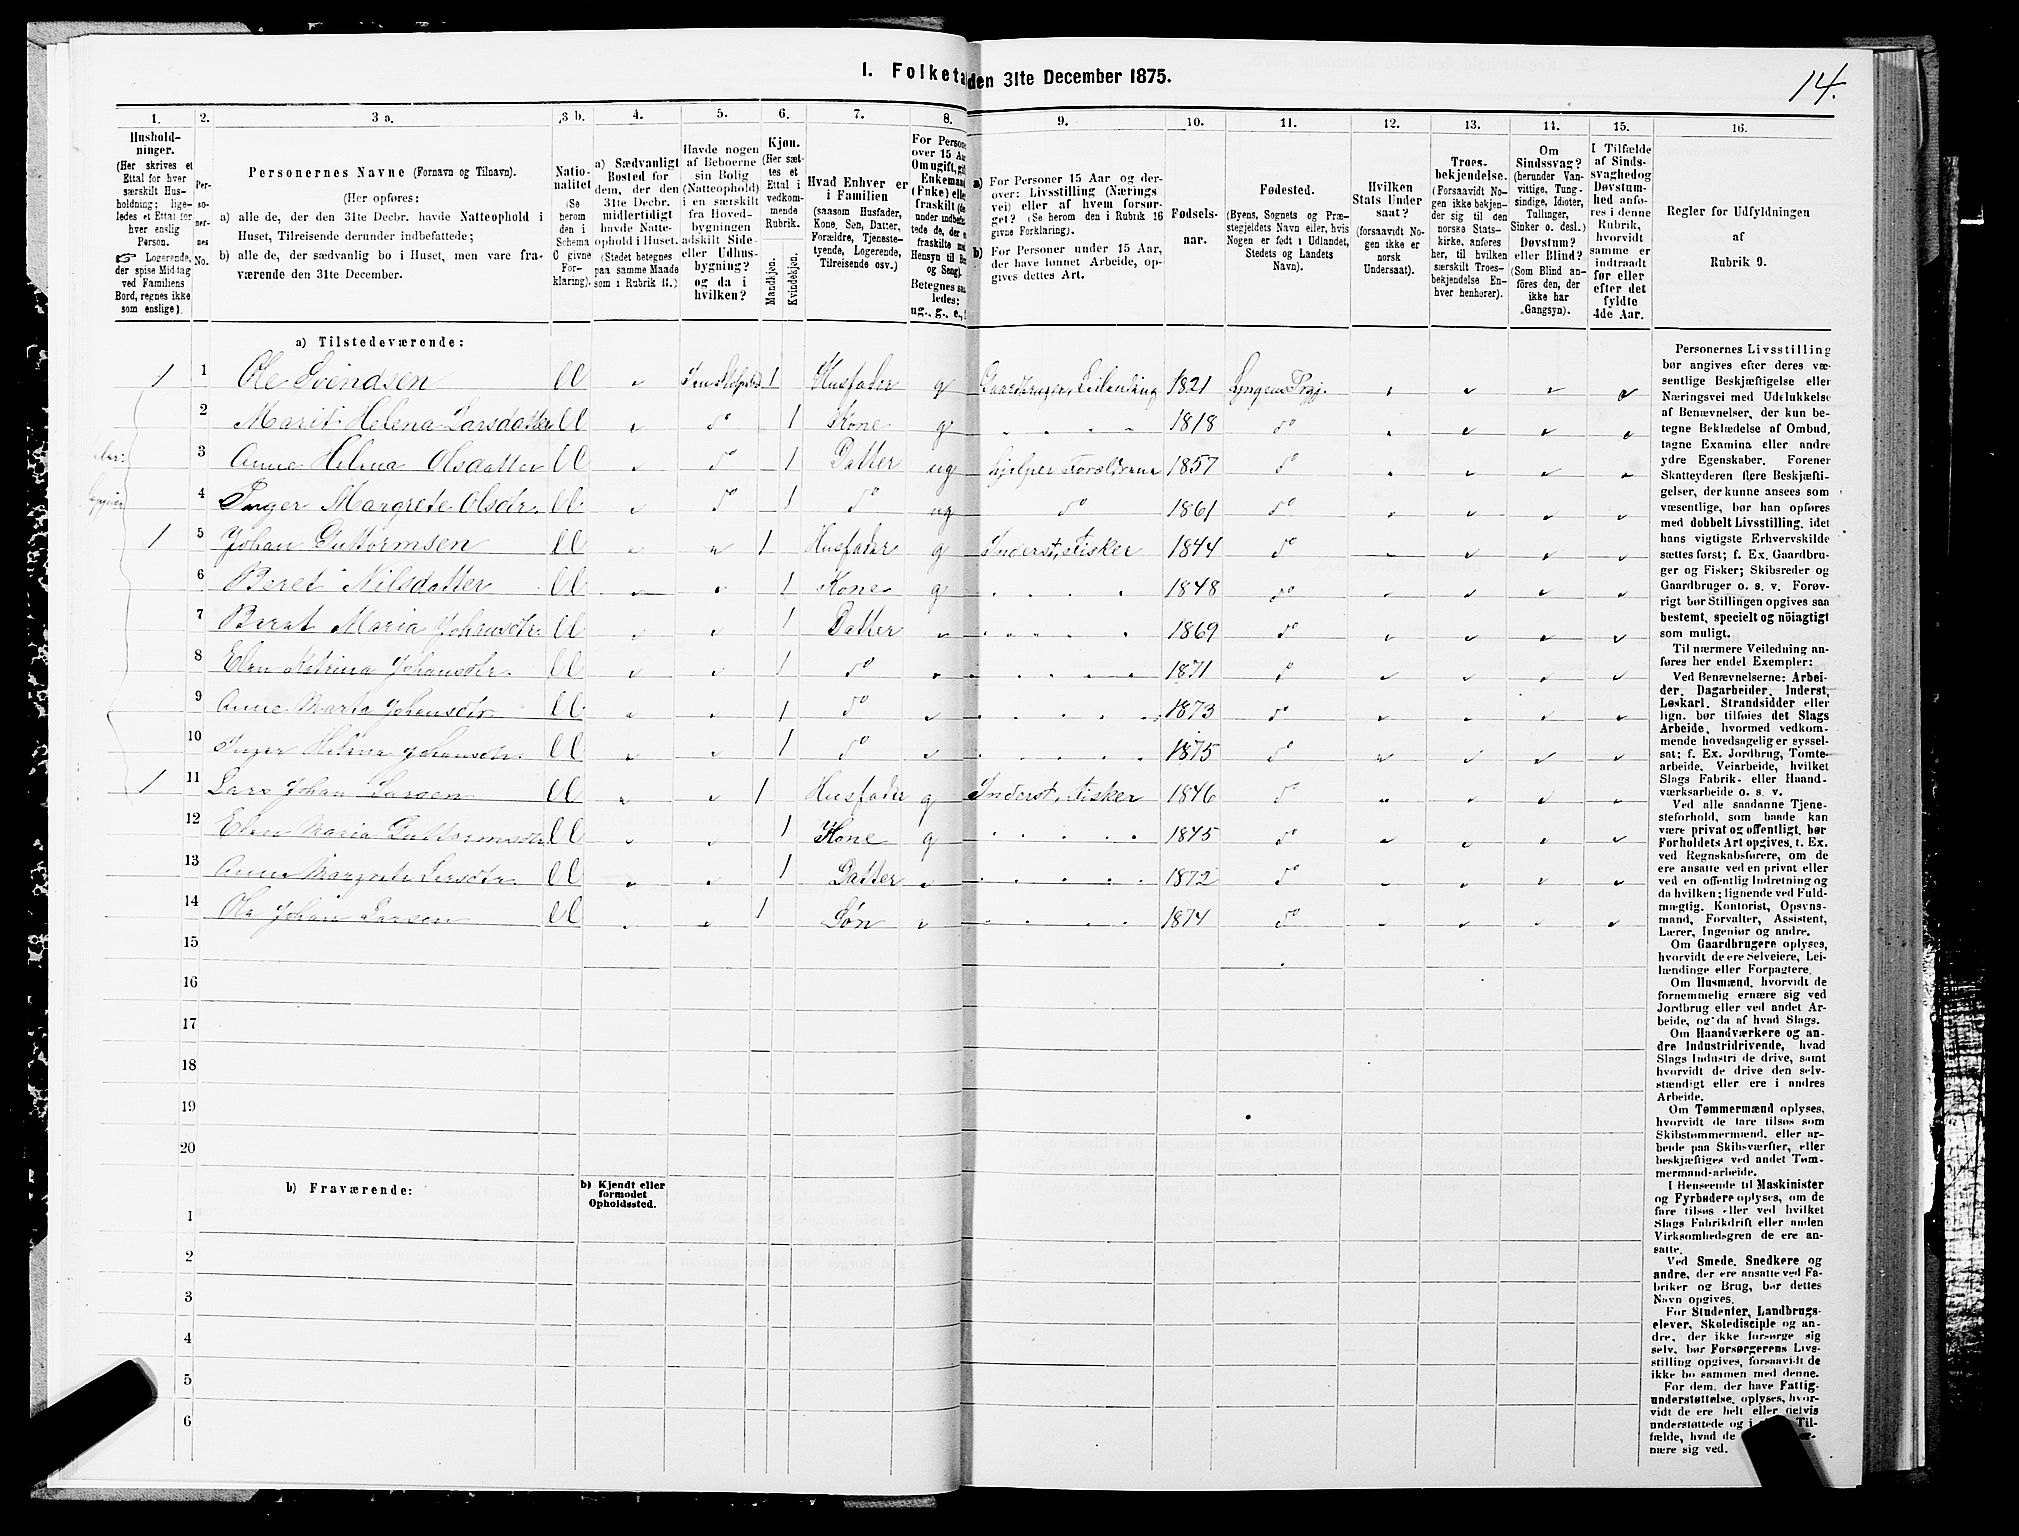 I. Folketa den 31te December 1875.
14.
1. 2. 3 a. 3 b. 4. 5. 6. 7. 8. 9. 10. 11. 12. 13. 14. 15. 16.
Hushold-
ninger.
(Her skrives et
Ettal for hver
særskilt Hus-
holdning; lige-
ledes et Ettal for
hver enslig
Person.
☞ Logerende,
der spise Middag
ved Familiens
Bord, regnes ikke
som enslige).
Per-
so-
ner-
nes
No.
Personernes Navne (Fornavn og Tilnavn).
(Her opføres:
a) alle de, der den 31te Decbr. havde Natteophold i
Huset, Tilreisende derunder indbefattede;
b) alle de, der sædvanlig bo i Huset, men vare fra-
værende den 31te December.
Natio-
nalitet
(Se
herom
den i
Schema
C givne
For-
klaring).
a) Sædvanligt
Bosted for
dem, der den
31te Decbr.
midlertidigt
havde Natte-
ophold i Huset.
(Stedet betegnes
paa samme Maade
som i Rubrik 11.)
Havde nogen
af Beboerne
sin Bolig
(Natteophold)
i en særskilt
fra Hoved-
bygningen
adskilt Side-
eller Udhus-
bygning?
og da i
hvilken?
Kjøn.
(Her sæt-
tes et
Ettal i
vedkom-
mende
Rubrik.
Mandkjøn.
Kvindekjøn.
Hvad Enhver er
i Familien
(saasom Husfader,
Kone, Søn, Datter,
Forældre, Tjeneste-
tyende, Logerende,
Tilreisende osv.)
For Persone
over 15 Aar
Omugift, gift
Enkemand
(Enke) eller
fraskilt
Betegnes saa-
ledes:
ug., g., e.,
a) For Personer 15 Aar og der-
over: Livsstilling (Nærings
vei) eller af hvem forsør-
get? (Se herom den i Rubrik 16
givne Forklaring).
b) For Personer under 15 Aar,
der have lønnet Arbeide, op-
gives dettes Art.
Fødsels-
aar.
Fødested.
(Byens, Sognets og Præ-
stegjeldets Navn eller, hvis
Nogen er født i Udlandet,
Stedets og Landets
Navn).
Hvilken
Stats Under
saat?
(forsaavidt No-
gen ikke er
norsk
Undersaat).
Troes-
bekjendelse.
(Forsaavidt No-
gen ikke bekjen-
der sig til den
norske Stats-
kirke, anføres
her, til hvilken
særskilt Troes-
bekjendelse En-
hver henhører).
Om
Sindssvag?
(herunder Van-
vittige, Tung-
sindige, Idioter,
Tullinger,
Sinker o. desl.)
Døvstum?
eller Blind?
(Som Blind an-
føres den, der
ikke har
Gangsyn).
I Tilfælde
af Sinds-
svaghed og
Døvstum-
hed anfø-
res i denne
Rubrik,
hvorvidt
samme er
indtraadt
før eller
efter det
fyldte
4de Aar.
Regler for Udfyldningen
af
Rubrik 9.
a) Tilstedeværende:
1 1 Ole Svendsen 1 Husfader g Gaardbruger, Leilending 1821 Lyngens Prgj.
2 Marit Helena Larsdatter do 1 Kone g 1818 do
3 Anne Helena Olsdatter do 1 Datter ug hjelper Forældrene 1857 do
4 Inger Margrete Olsdtr. do 1 do ug do 1861 do
1 5 Johan Guttormsen 1 Husfader g Inderst, Fisker 1844 do
6 Beret Nilsdatter 1 Kone g 1848 do
7 Beret Maria Johansdtr. 1 Datter 1869 do
8 Elen Katrina Johansdtr. 1 do 1871 do
9 Anne Maria Johansdtr. 1 do 1873 do
10 Inger Helena Johansdtr. 1 do 1875 do
1 11 Lars Johan Larsen 1 Husfader g Inderst, Fisker 1846 do
12 Elen Maria Guttormsdtr 1 Kone g 1845 do
13 Anne Margrete Larsdtr. 1 Datter 1872 do
14 Ole Johan Larsen 1 Søn 1874 do
15
16
17
18
19
20
b) Fraværende:
b) Kjendt eller
formodet
Opholdssted.
1
2
3
4
5
6
Personernes Livsstilling
bør angives efter deres væ-
sentlige Beskjæftigelse eller
Næringsvei med Udelukkelse
af Benævnelser, der kun be-
tegne Beklædelse af Ombud,
tagne Examina eller andre
ydre Egenskaber. Forener
Skatteyderen flere Beskjæfti-
gelser, der kunne ansees som
væsentlige, bør han opføres
med dobbelt Livsstilling, idet
hans vigtigste Erhvervskilde
sættes først; f. Ex. Gaardbru-
ger og Fisker; Skibsreder og
Gaardbruger o. s. v. Forøv-
rigt bør Stillingen opgives saa
bestemt, specielt og nöiagtigt
som muligt.
Til nærmere Veiledning an-
føres her endel Exempler:
Ved Benævnelserne: Arbei-
der, Dagarbeider, Inderst,
Løskarl, Strandsidder eller
lign. bør tilføies det Slags
Arbeide, hvormed vedkom-
mende hovedsagelig er syssel-
sat; f. Ex. Jordbrug, Tomte-
arbeide, Veiarbeide, hvilket
Slags Fabrik- eller Haand-
værksarbeide o. s. v.
Ved alle saadanne Tjene-
steforhold, som baade kan
være privat og offentligt, bør
Forholdets Art opgives, t. Ex.
ved Regnskabsførere, om de
ere ansatte ved en privat eller
ved en offentlig Indretning og
da hvilken; lignende ved Fuld-
mægtig, Kontorist, Opsyns-
mand, Forvalter, Assistent,
Lærer, Ingeniør og andre.
Om Gaardbrugere oplyses,
hvorvidt de ere Selveiere, Lei-
lændinge eller Forpagtere.
Om Husmænd, hvorvidt de
fornemmelig ernære sig ved
Jordbrug eller ved andet Ar-
beide, og da af hvad Slags.
Om Haandværkere og an-
dre Industridrivende, hvad
Slags Industri de drive, samt
hvorvidt de drive den selv-
stændigt eller ere i andres
Arbeide.
Om Tømmermænd oplyses,
hvorvidt de fare tilsøs som
Skibstømmermænd, eller ar-
beide paa Skibsværfter, eller
beskjæftiges ved andet Tøm-
mermand-arbeide.
I Henseende til Maskinister
og Fyrbødere oplyses, om de
fare tilsøs eller ved hvilket
Slags Fabrikdrift eller anden
Virksomhedsgren de ere an-
satte.
Ved Smede, Snedkere og
andre, der ere ansatte ved Fa-
briker og Brug, bør dettes
Navn opgives.
For Studenter, Landbrugs-
elever, Skoledisciple og an-
dre, der ikke forsørge sig
selv, bør Forsørgerens Livs-
stilling opgives, forsaavidt de
ikke bo sammen med denne.
For dem, der have Fattig-
understøttelse, oplyses, hvor-
vidt de ere helt eller delvis
understøttede og i Til-
fælde, hvad de
nære sig ved.